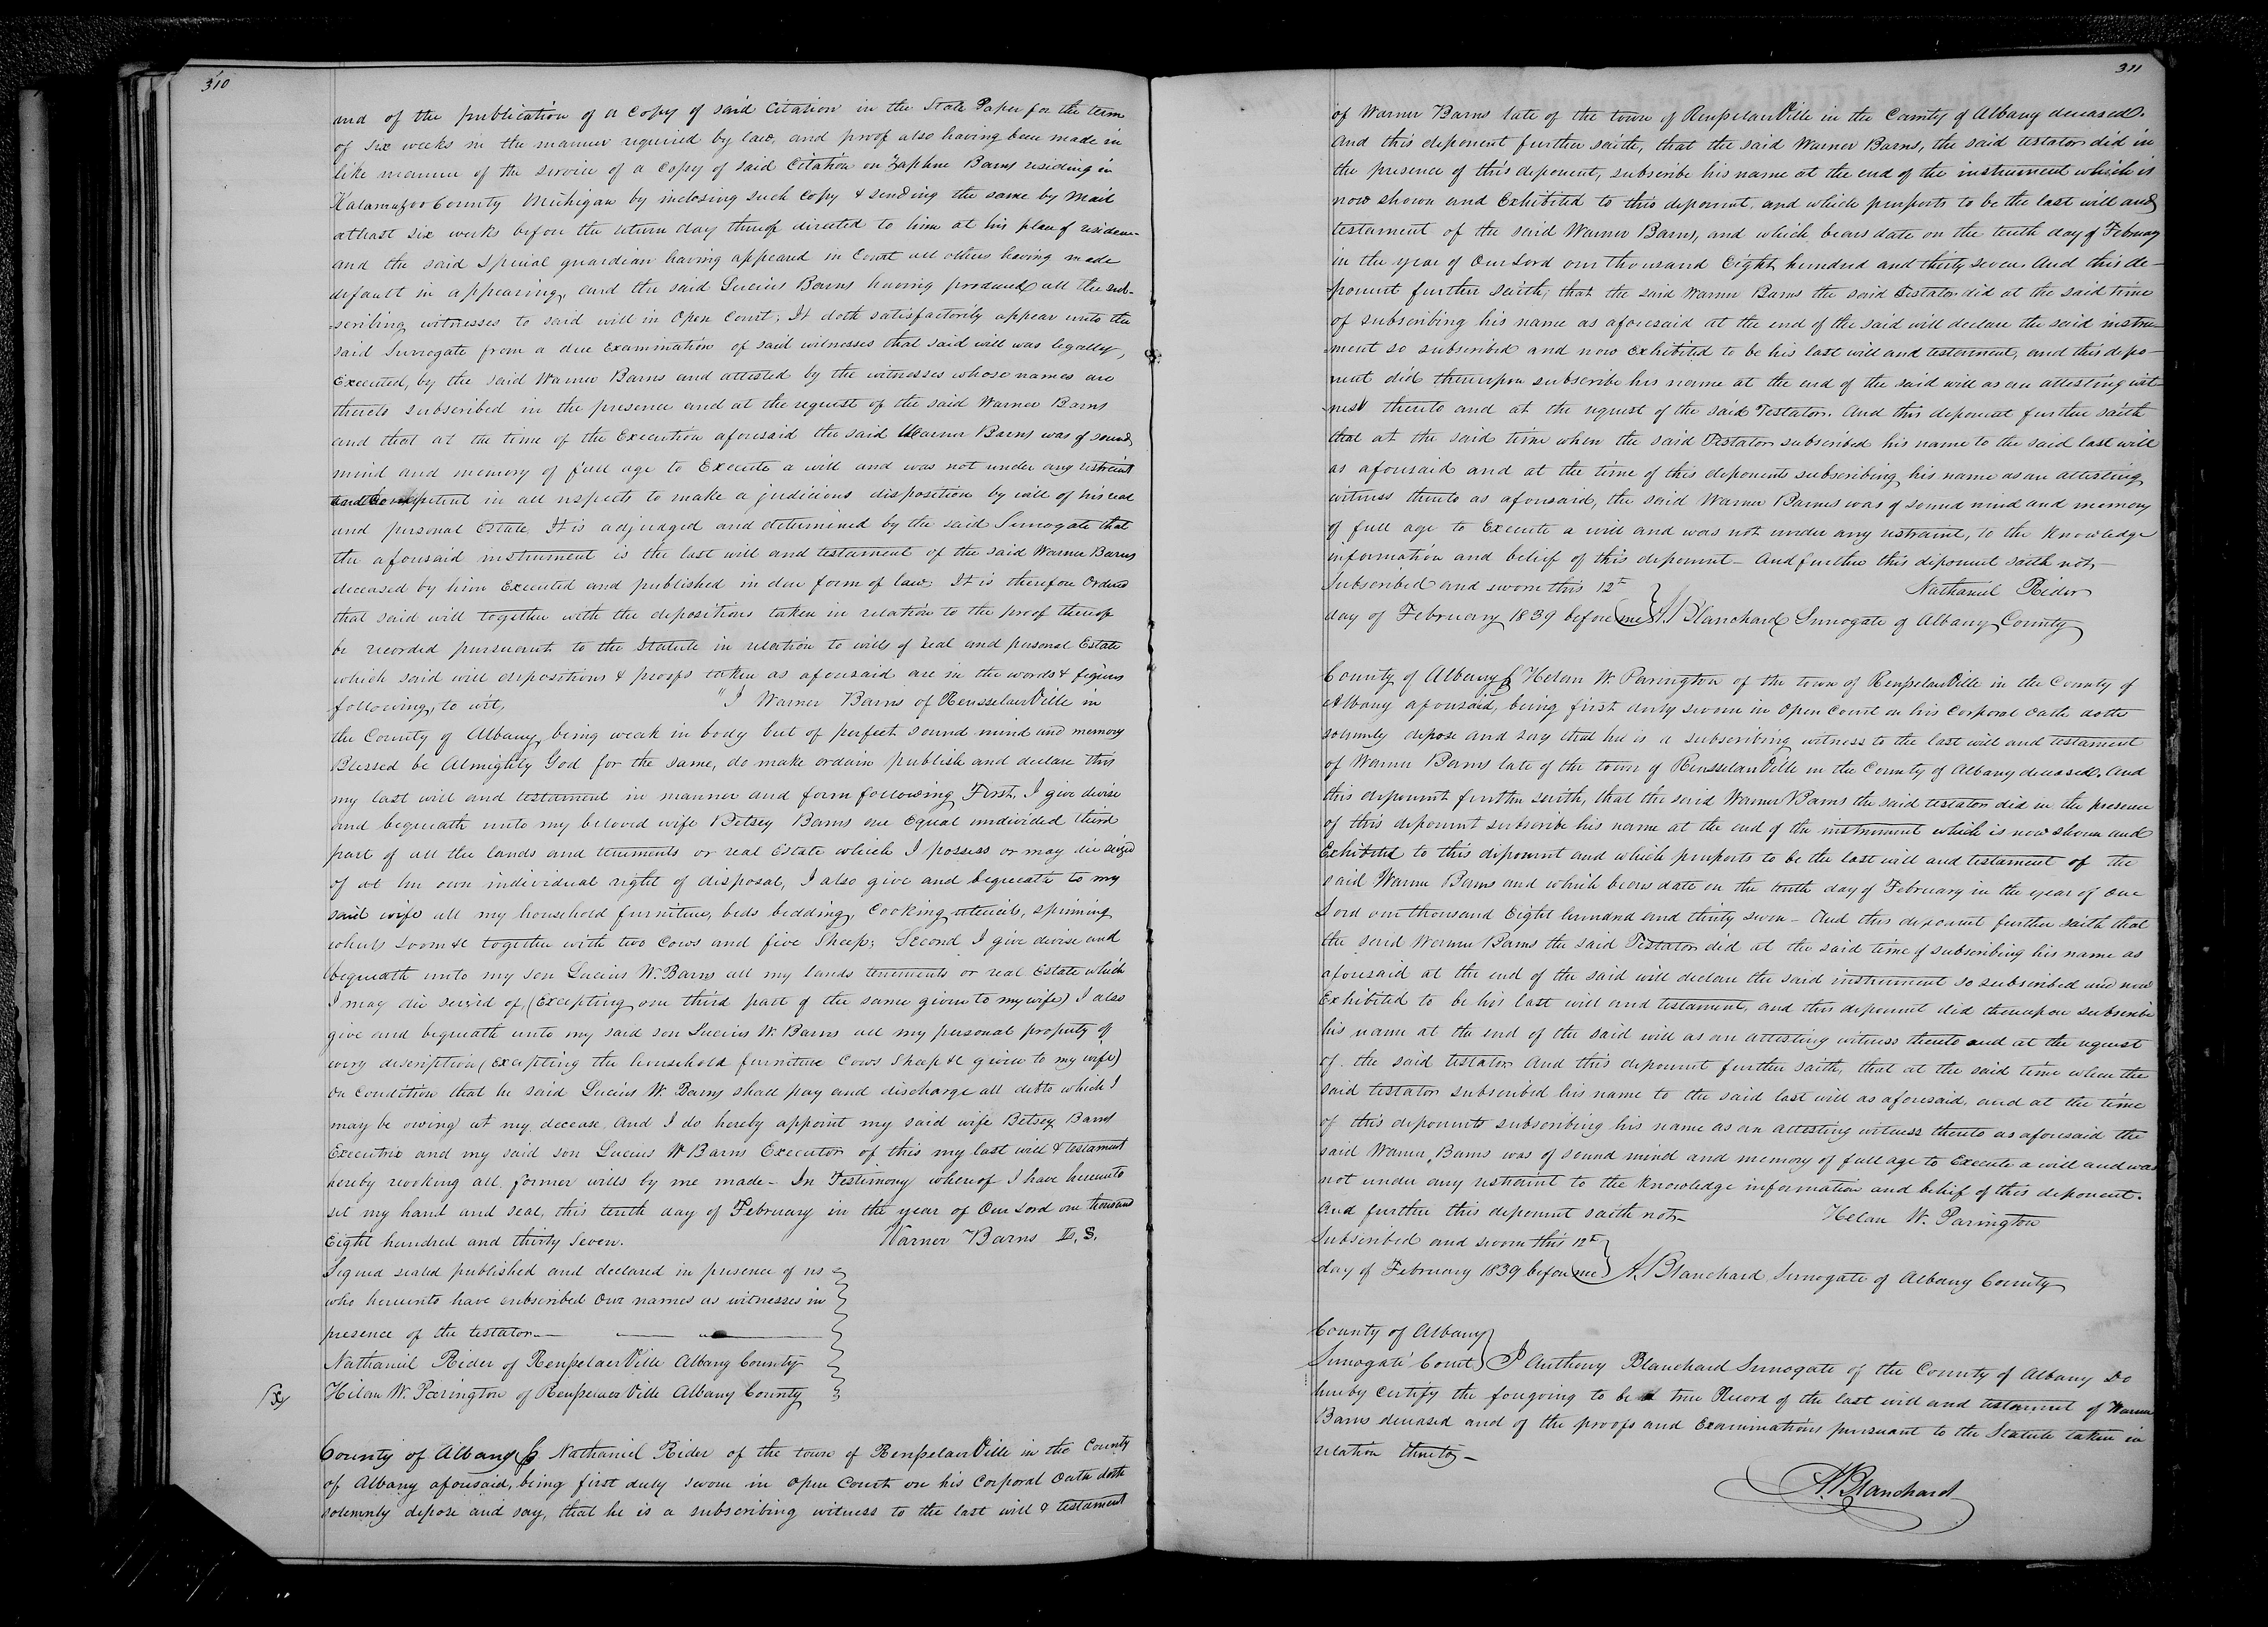 310
and of the publication of a Copy of said Citation in the State Paper for the term
of six weeks in the manner required by law, and proof also having been made in
like manner of the service of a copy of said Citation on Zaphne Barns residing in
Kalamazoo County Michigan by inclosing such copy & sending the same by Mail
atleast six weeks before the return day thereof directed to him at his place of residence
and the said special guardian having appeared in Court all others having made
default in appearing, and the said Lucius Barns having produced all the sub-
-scribing witnesses to said will in Open Court; It doth satisfactorily appear unto the
said Surrogate from a due Examination of said witnesses that said will was legally,
Executed, by the said Warner Barns and attested by the witnesses whose names are
thereto subscribed in the presence and at the request of the said Warner Barns
and that at the time of the Execution aforesaid the said Warner Barns was of sound
mind and memory of full age to Execute a will and was not under any restraint
and Competent in all respects to make a judicious disposition by will of his real
and personal Estate. It is adjudged and determined by the said Surrogate that
the aforesaid instrument is the last will and testament of the said Warner Barns
deceased by him Executed and published in due form of law. It is therefore Ordered
that said will together with the depositions taken in relation to the proof thereof
be recorded pursuant to the Statute in relation to wills of real and personal Estate
which said will depositions & proofs taken as aforesaid are in the words & figures
following, to wit, "I Warner Barns of RensselaerVille in
the County of Albany, being weak in body but of perfect sound mind and memory
Blessed be Almighty God for the same, do make ordain publish and declare this
my last will and testament in manner and form following First, I give devise
and bequeath unto my beloved wife Betsey Barns one Equal undivided third
part of all the lands and tenements or real Estate which I possess or may die seized
of at my own individual right of disposal, I also give and bequeath to my
said wife all my household furniture, beds bedding, Cooking utencils, spinning
wheels Loom &c together with two Cows and five Sheep; Second I give devise and
bequeath unto my son Lucius W. Barns all my lands tenements or real Estate which
I may die seized of, (Excepting one third part of the same given to my wife) I also
give and bequeath unto my said son Lucius W. Barns all my personal property of
every description (Excepting the household furniture Cows Sheep &c given to my wife)
on Condition that he said Lucius W. Barns shall pay and discharge all debts which I
may be owing at my decease. And I do hereby appoint my said wife Betsey Barns
Executrix and my said son Lucius W Barns Executor of this my last will & testament
hereby revoking all former wills by me made - In Testimony whereof I have hereunto
set my hand and seal, this tenth day of February in the year of Our Lord one thousand
Eight hundred and thirty Seven. Warner Barns L. S.
Signed sealed published and declared in presence of us
who hereunto have subscribed Our names as witnesses in
presence of the testator
Nathaniel Rider of RensselaerVille Albany County
Hilan W. Parington of RensselaerVille Albany County
County of Albany ss Nathaniel Rider of the town of RensselaerVille in the County
of Albany aforesaid, being first duly sworn in Open Court on his Corporal Oath doth
solemnly depose and say, that he is a subscribing witness to the last will & testament
311
of Warner Barns late of the town of RensselaerVille in the County of Albany deceased.
And this deponent further saith, that the said Warner Barns, the said testator did in
the presence of this deponent, subscribe his name at the end of the instrument which is
now shown and Exhibited to this deponent, and which purports to be the last will and
testament of the said Warner Barns, and which bears date on the tenth day of February
in the year of Our Lord one thousand Eight hundred and thirty seven. And this de-
-ponent further saith, that the said Warner Barns the said testator did at the said time
of subscribing his name as aforesaid at the end of the said will declare the said instru-
-ment so subscribed and now exhibited to be his last will and testament, and this depo-
nent did thereupon subscribe his name at the end of the said will as an attesting wit-
-ness thereto and at the request of the said Testator. And this deponent further saith
that at the said time when the said Testator subscribed his name to the said last will
as aforesaid and at the time of this deponents subscribing his name as an attesting
witness thereto as aforesaid, the said Warner Barnes was of sound mind and memory
of full age to Execute a will and was not under any restraint, to the Knowledge
information and belief of this deponent - And further this deponent saith not -
Subscribed and sworn this 12th Nathaniel Rider
day of February 1839 before me A. Blanchard Surrogate of Albany County
County of Albany ss Helan W. Parington of the town of RensselaerVille in the County of
Albany aforesaid, being first duly sworn in Open Court on his Corporal Oath doth
solemnly depose and say that he is a subscribing witness to the last will and testament
of Warner Barns late of the town of RensselaerVille in the County of Albany deceased. And
this deponent further saith, that the said Warner Barns the said testator did in the presence
of this deponent subscribe his name at the end of the instrument which is now shown and
Exhibited to this deponent and which purports to be the last will and testament of the
said Warner Barns and which bears date on the tenth day of February in the year of Our
Lord one thousand Eight hundred and thirty seven - And this deponent further saith that
the said Warner Barns the said Testator did at the said time of subscribing his name as
aforesaid at the end of the said will declare the said instrument so subscribed and now
Exhibited to be his last will and testament, and this deponent did thereupon subscribe
his name at the end of the said will as an attesting witness thereto and at the request
of the said testator And this deponent further saith, that at the said time when the
said testator subscribed his name to the said last will as aforesaid, and at the time
of this deponents subscribing his name as an attesting witness thereto as aforesaid the
said Warner Barns was of sound mind and memory of full age to Execute a will and was
not under any restraint to the Knowledge information and belief of this deponent.
And further this deponent saith not - Helan W. Parington
Subscribed and sworn this 12th
day of February 1839 before me A. Blanchard Surrogate of Albany County
County of Albany
Surrogate Court I Anthony Blanchard Surrogate of the County of Albany Do
hereby Certify the foregoing to be a true Record of the last will and testament of Warner
Barns deceased and of the proofs and Examinations pursuant to the Statute taken in
relation thereto -
A. Blanchard